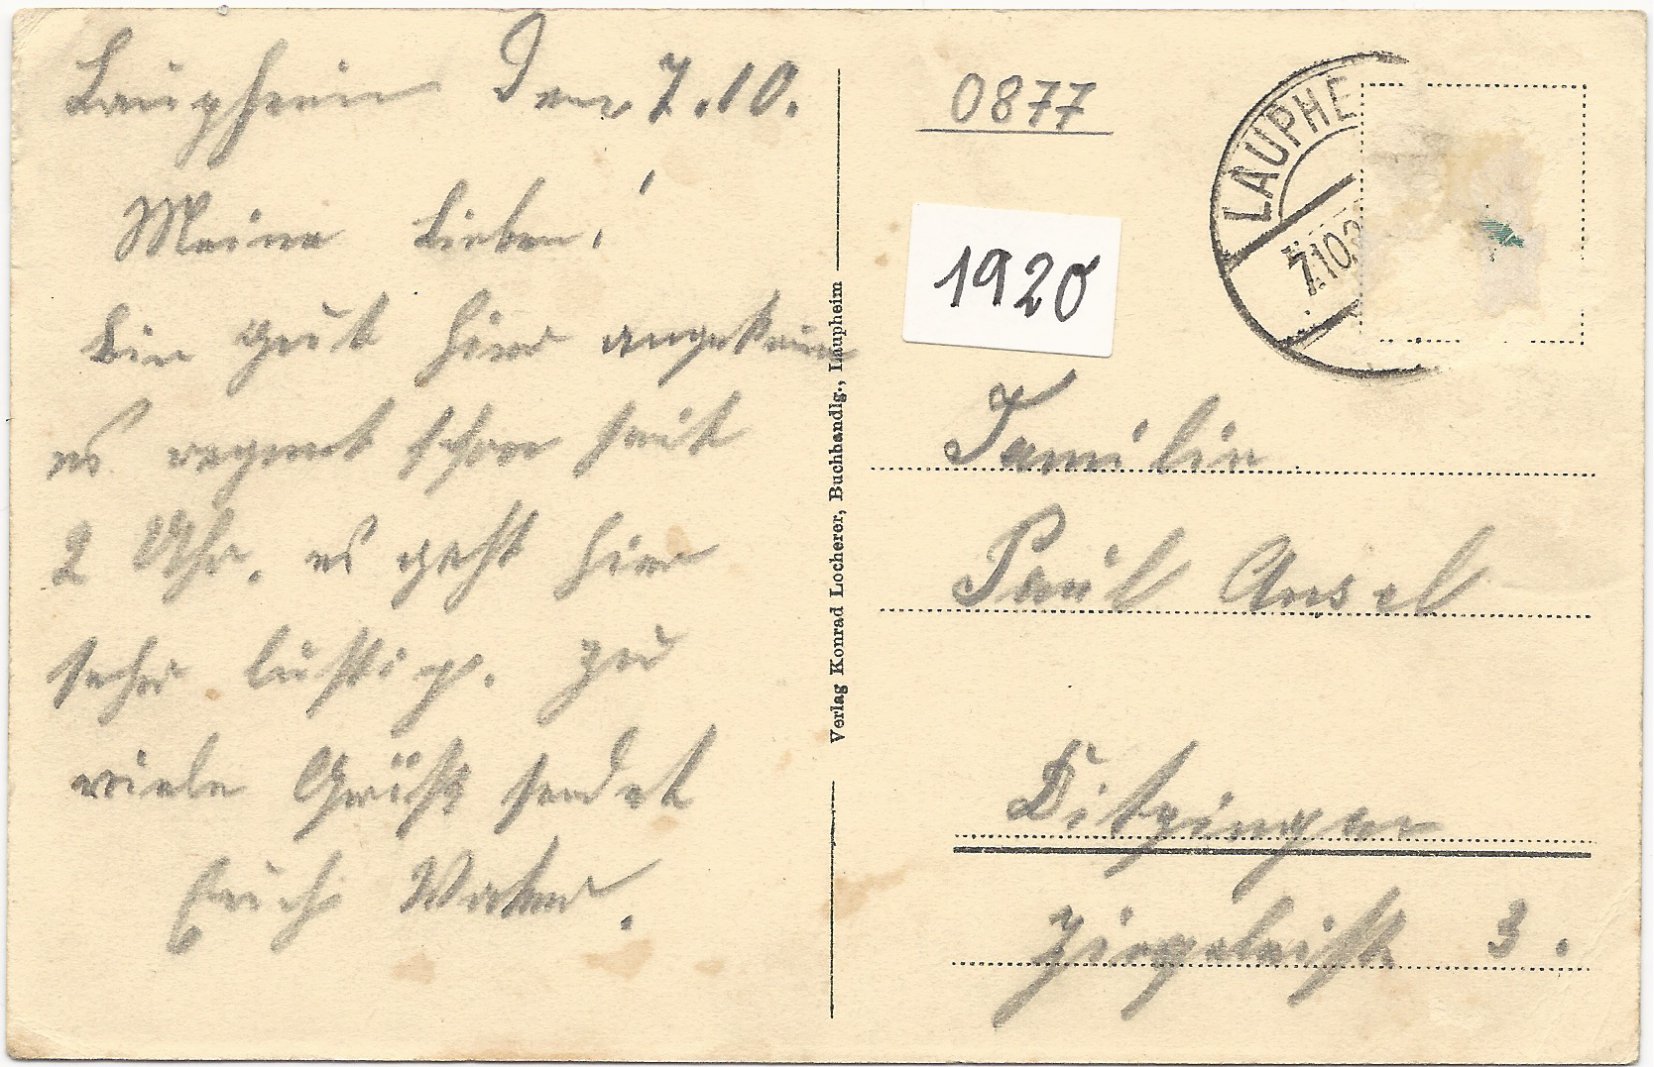 Laupheim Den 7.10.
Meine Lieben!
bin gut hier angekom̅
es regnet schon seit
2 Uhr. es geht hier
sehr lustig. 
viele Grüße sendet
Erich
Verlag Konrad Locherer, Buchhandlg., Laupheim
0877
1920
LAUPHE
7.10.2
Familie
Paul Ansel
Ditzingen
3.